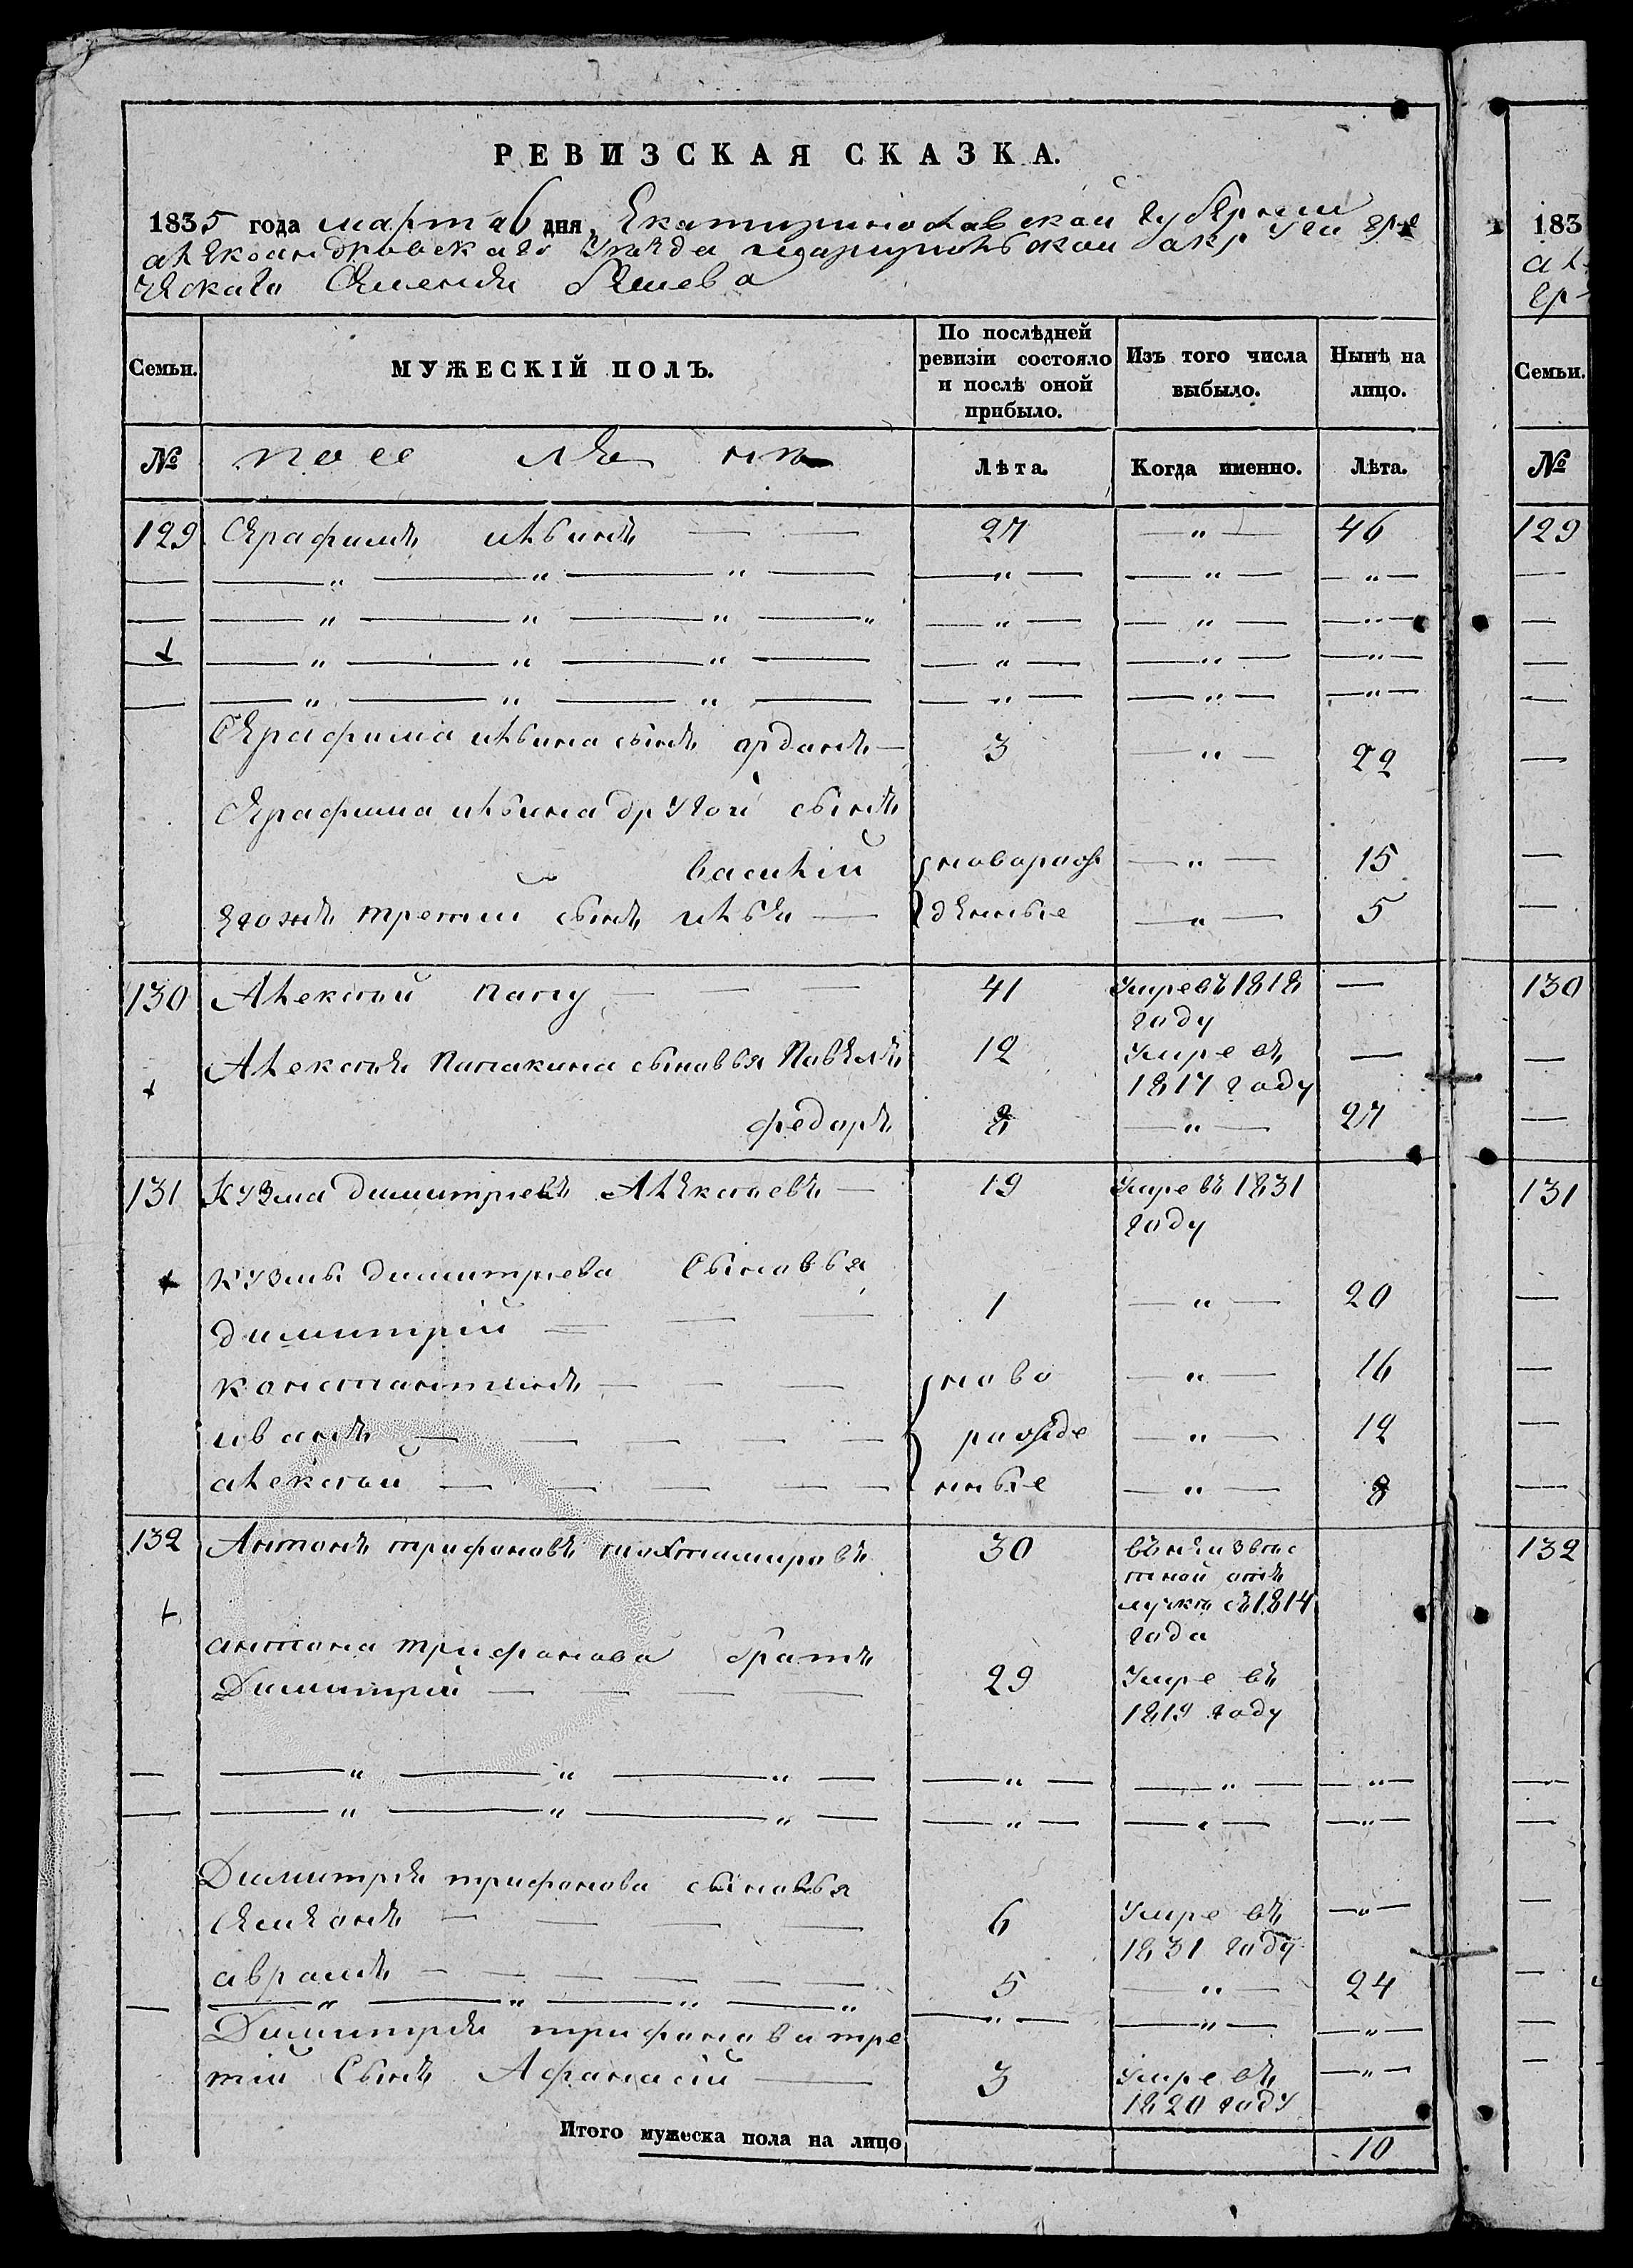 РЕВИЗСКАЯ СКАЗКА.
1835 года марта 6 дня, Екатиринославской губернии
александровскаго уезда мариупольской округи гре
ческаго селения бешева
Семьи. МУЖЕСКІЙ ПОЛЪ. По послѣдней ревизіи состояло и послѣ оной прибыло. Изъ того числа выбыло. Нынѣ на лицо.
№ поселянъ Лѣта. Когда именно. Лѣта.
129 Серафимъ ильинъ — — 27 — „ — 46
Серафима ильина сынъ орданъ — 3 — „ — 22
Серафима ильина другой сынъ
василій новорож — „ — 15
егожъ третий сынъ илья — денные — „ — 5
130 Алексей папу — — — 41 умре въ 1818 —
году
Алексея Папакина сыновья Павелъ 12 умре въ —
1817 году
федоръ 8 — „ — 27
131 Кузма димитриевъ Алексеевъ — 19 умре въ 1831
году
кузмы димитриева сыновья
димитрій — — — 1 — „ — 20
константинъ — — — ново — „ — 16
иванъ — — — — — рожде — „ — 12
алексей — — — — — нные — „ — 8
132 Антонъ трифоновъ 30 въ неизвес
тной отъ
лучки съ 1814
года
антона трифонова братъ
Димитрий — — — — 29 умре въ
1819 году
Димитрия трифонова сыновья
семенъ — — — — 6 умре въ — „ —
1831 году
аврамъ — — — — — — 5 — „ — 24
Димитрия трифонова тре
тий сынъ Афанасій — 3 умре въ — „ —
1820 году
Итого мужеска пола на лицо 10
183
Семьи.
№
129
130
131
132